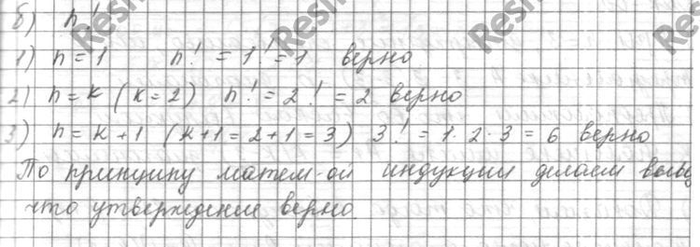 б) n!
1) n = 1 n! = 1! = 1 верно
2) n = k (k = 2) n! = 2! = 2 верно
3) n = k + 1 (k + 1 = 2 + 1 = 3) 3! = 1 · 2 · 3 = 6 верно
По принципу матем-ой индукции делаем выво
что утверждение верно